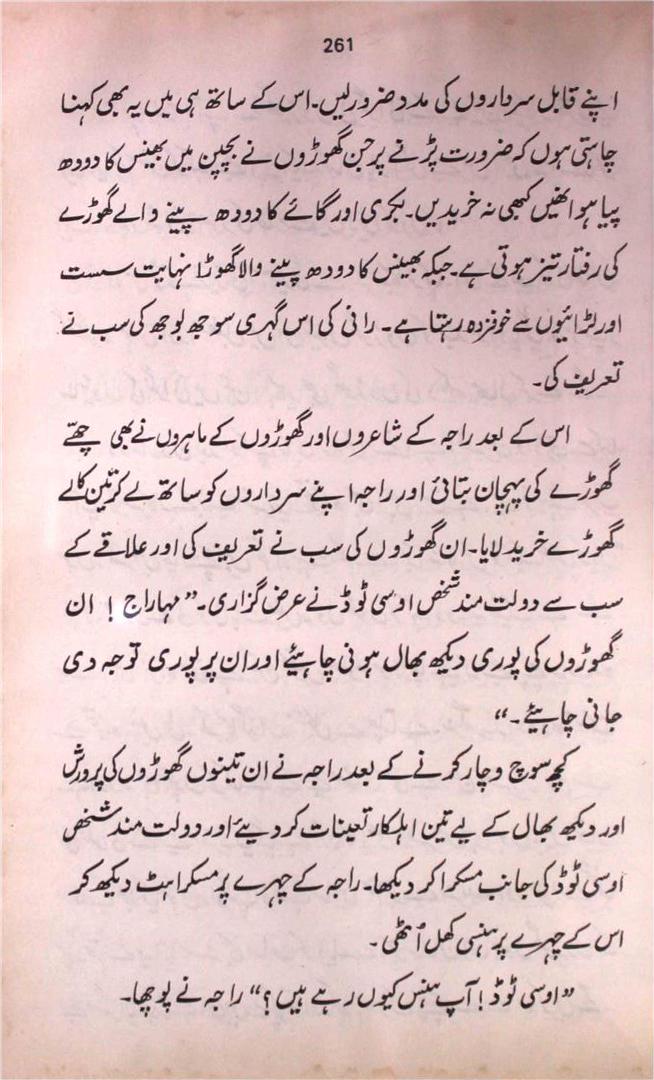 261
اپنے قابل سرداروں کی مدد ضرور لیں۔ اس کے ساتھ ہی میں یہ بھی کہنا
چاہتی ہوں کہ ضرورت پڑنے پر جن گھوڑوں نے بچپن میں بھینس کا دودھ
پیا ہو انھیں کبھی نہ خریدیں۔ بکری اور گائے کا دودھ پینے والے گھوڑے
کی رفتار تیز ہوتی ہے۔ جبکہ بھینس کا دودھ پینے والا گھوڑا نہایت سست
اور لڑائیوں سے خوفزدہ رہتا ہے۔ رانی کی اس گہری سوجھ بوجھ کی سب نے
تعریف کی۔
اس کے بعد راجہ کے شاعروں اور گھوڑوں کے ماہروں نے بھی چھتے
گھوڑے کی پہچان بتائی اور راجہ اپنے سرداروں کو ساتھ لے کر تین کالے
گھوڑے خرید لایا۔ ان گھوڑوں کی سب نے تعریف کی اور علاقے کے
سب سے دولت مند شخص اوسی ٹوڈ نے عرض گزاری۔ ”مہاراج! ان
گھوڑوں کی پوری دیکھ بھال ہونی چاہئیے اور ان پر پوری توجہ دی
جانی چاہیئے۔“
کچھ سوچ وچار کرنے کے بعد راجہ نے ان تینوں گھوڑوں کی پرورش
اور دیکھ بھال کے لیے تین اہلکار تعینات کر دیئے اور دولت مند شخص
اوسی ٹوڈ کی جانب مسکرا کر دیکھا۔ راجہ کے چہرے پر مسکراہٹ دیکھ کر
اس کے چہرے پر ہنسی کھل اُٹھی۔
”اوسی ٹوڈ! آپ ہنس کیوں رہے ہیں؟“ راجہ نے پوچھا۔